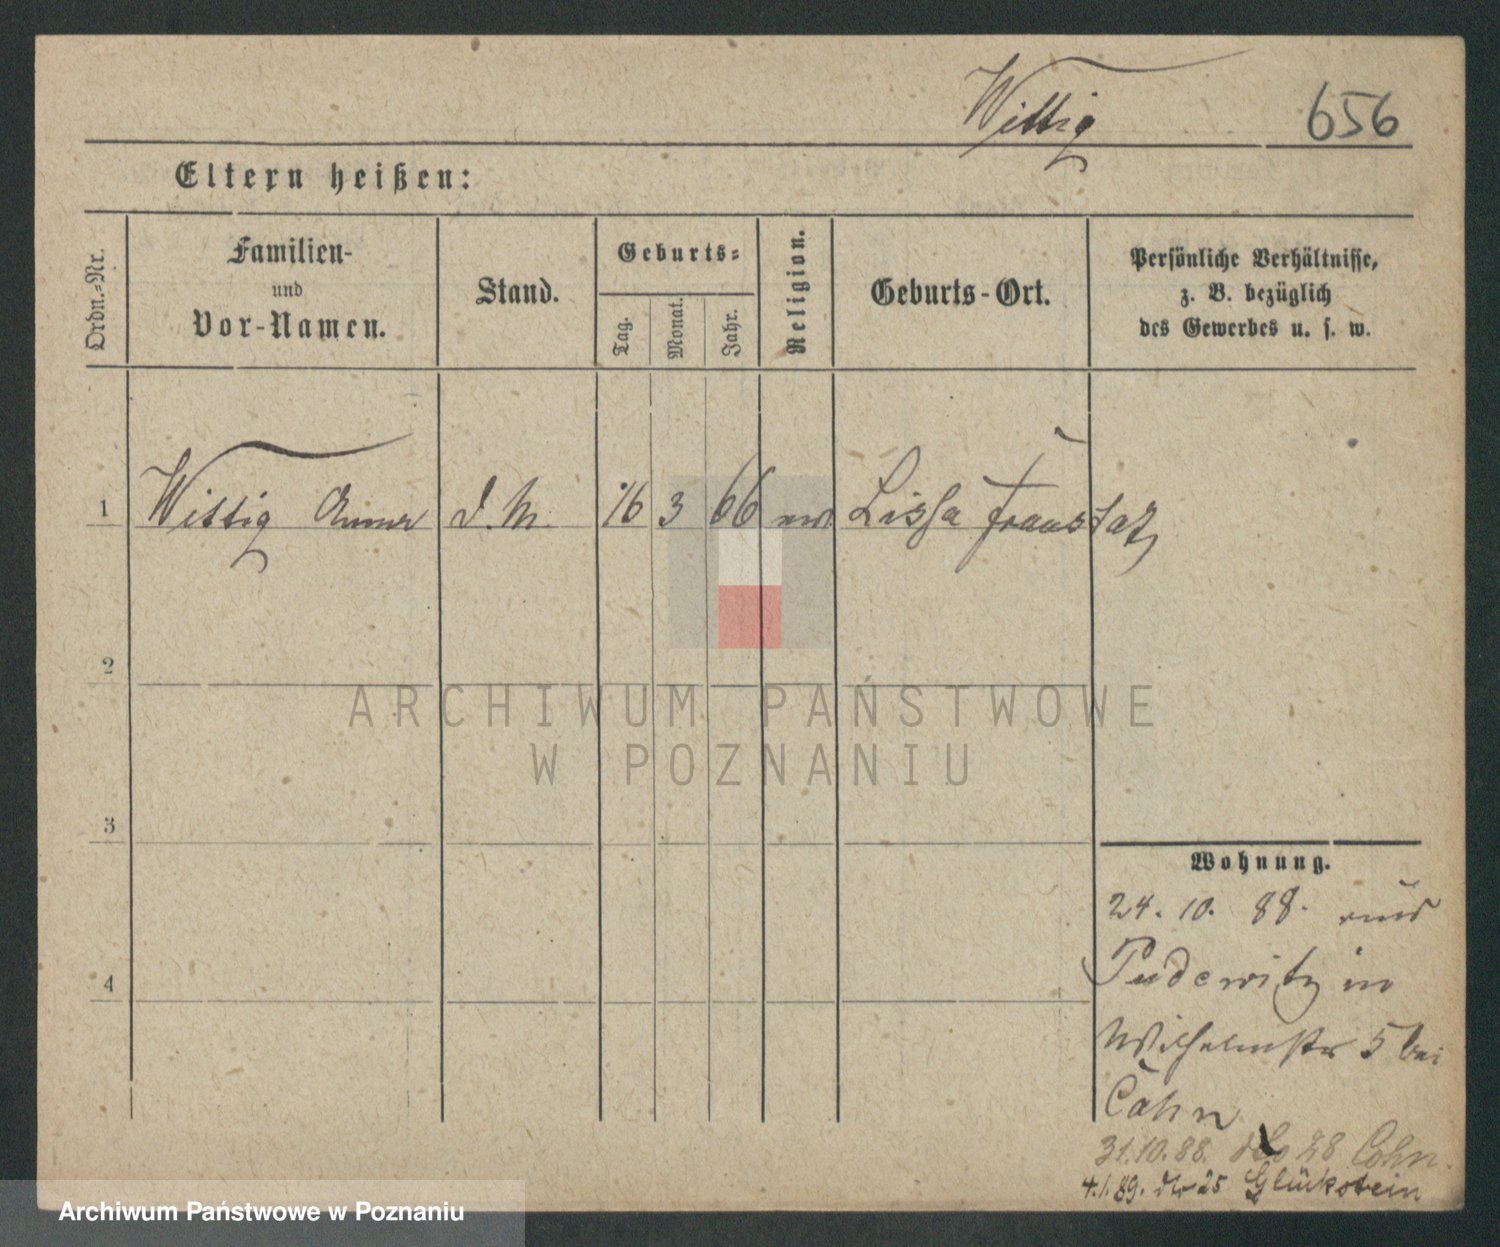 Wittig 656
Eltern heißen:
Ordn.-Nr.
Familien-
und
Vor-Namen.
Stand.
Geburts-
Tag.
Monat.
Jahr.
Religion.
Geburts-Ort.
Persönliche Verhältnisse,
z. B. bezüglich
des Gewerbes u. s. w.
1 Wittig Anna D. M. 16 3 66 Lissa Fraustadt
2
3
4
Wohnung.
24. 10. 88. aus
Pudewitz in
Wilhelmstr 5 bei
Cohn
31.10.88. 28 Cohn.
4.1.89. 25 Glückstein
ARCHIWUM PAŃSTWOWE
W POZNANIU
Archiwum Państwowe w Poznaniu